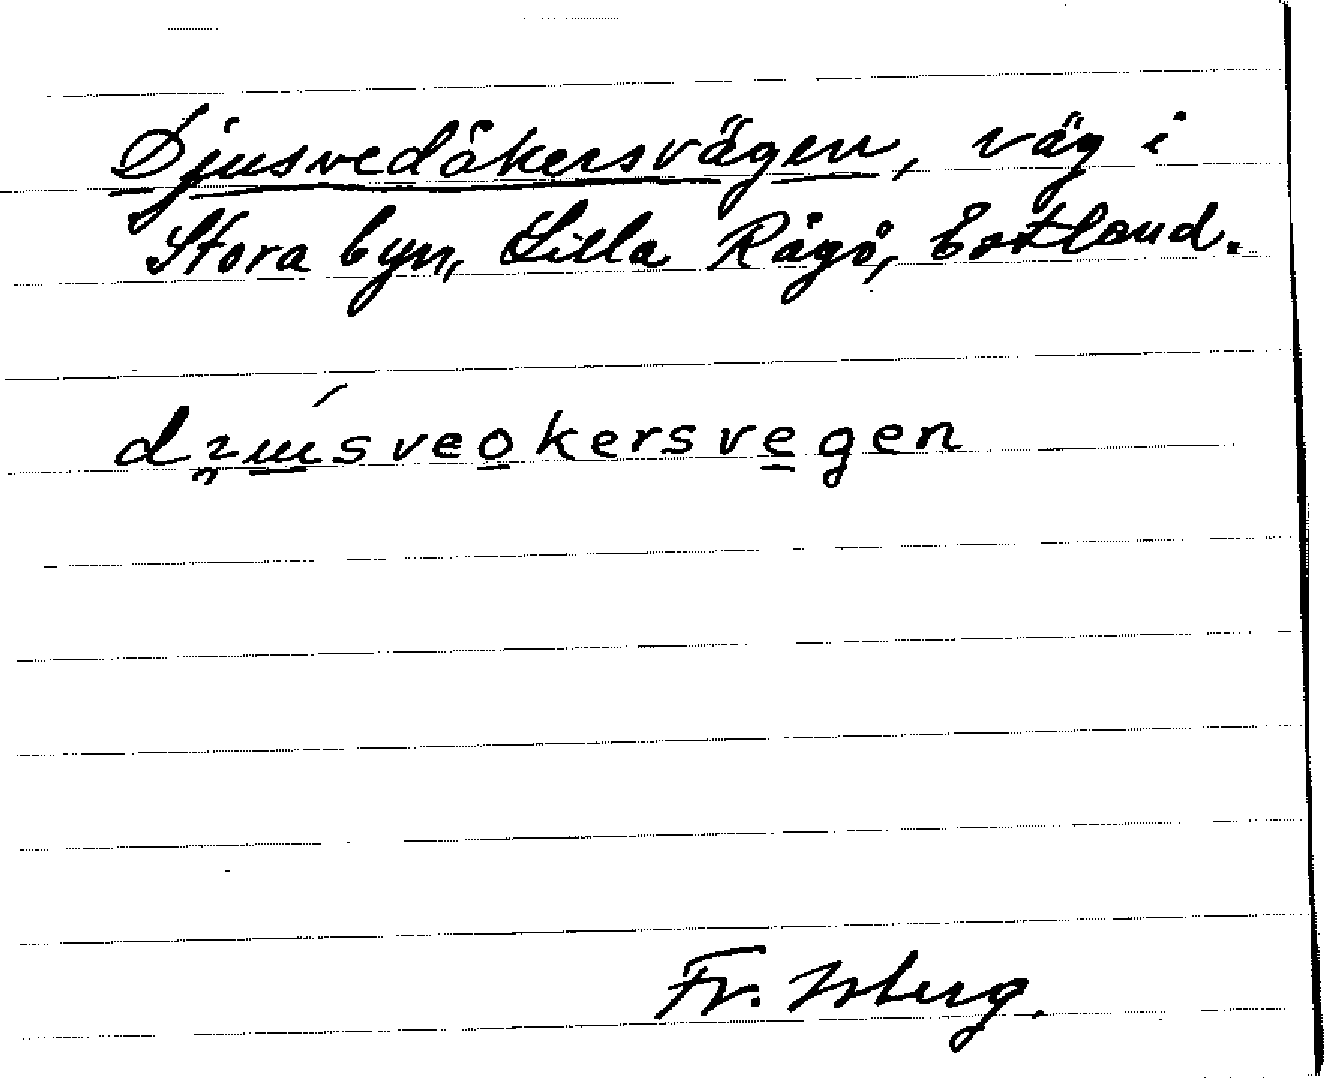 Djusvedåkersvägen, väg i
Stora byn, Lilla Rågö, Estland.
dzúsveokersvegen
Fr. Isberg.